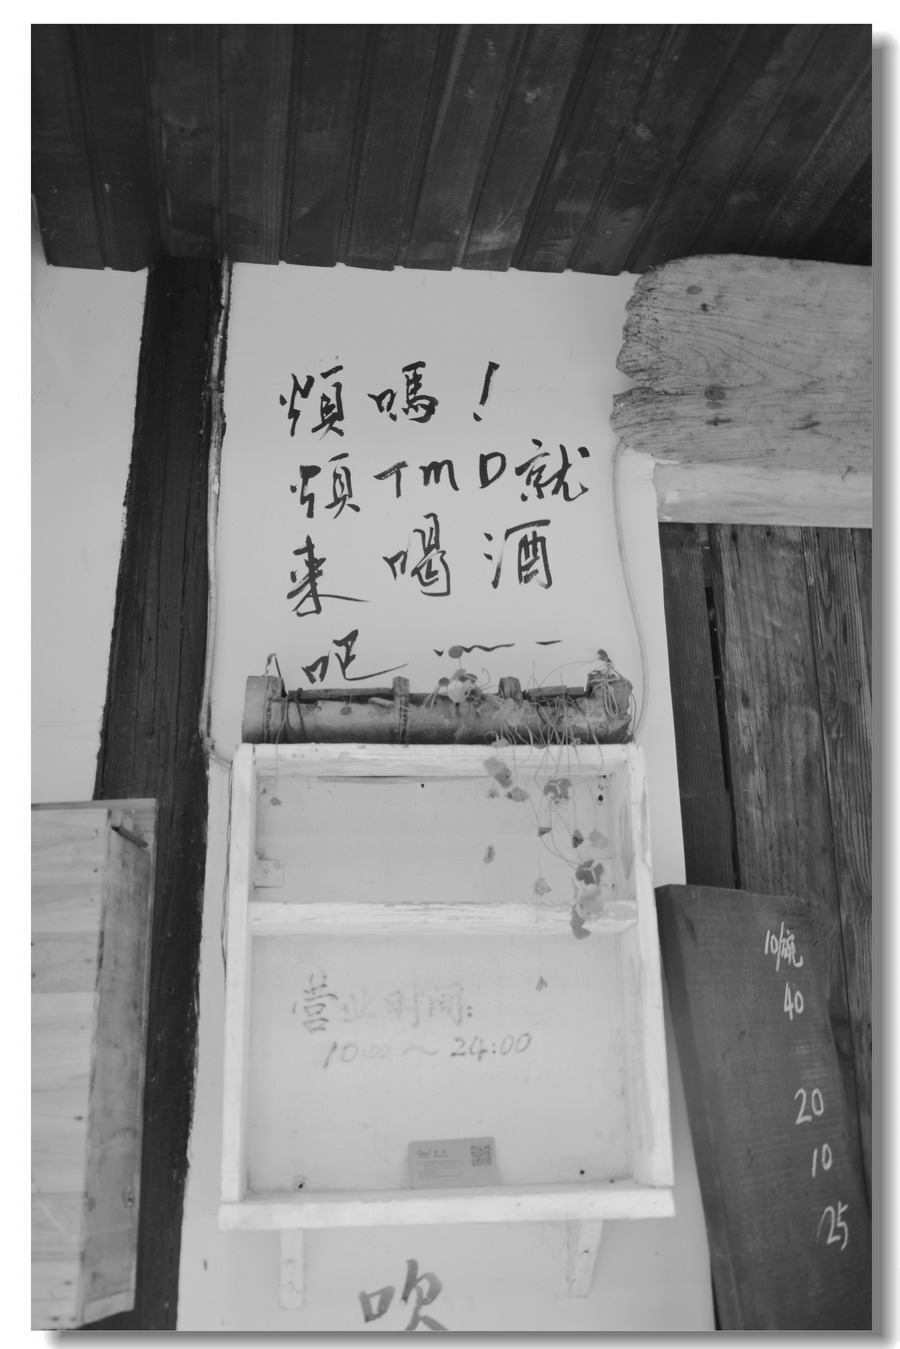 煩嗎！
煩TMD就
来喝酒
吧
营业时间：
10:00～24:00
10/碗
40
20
10
25
吹